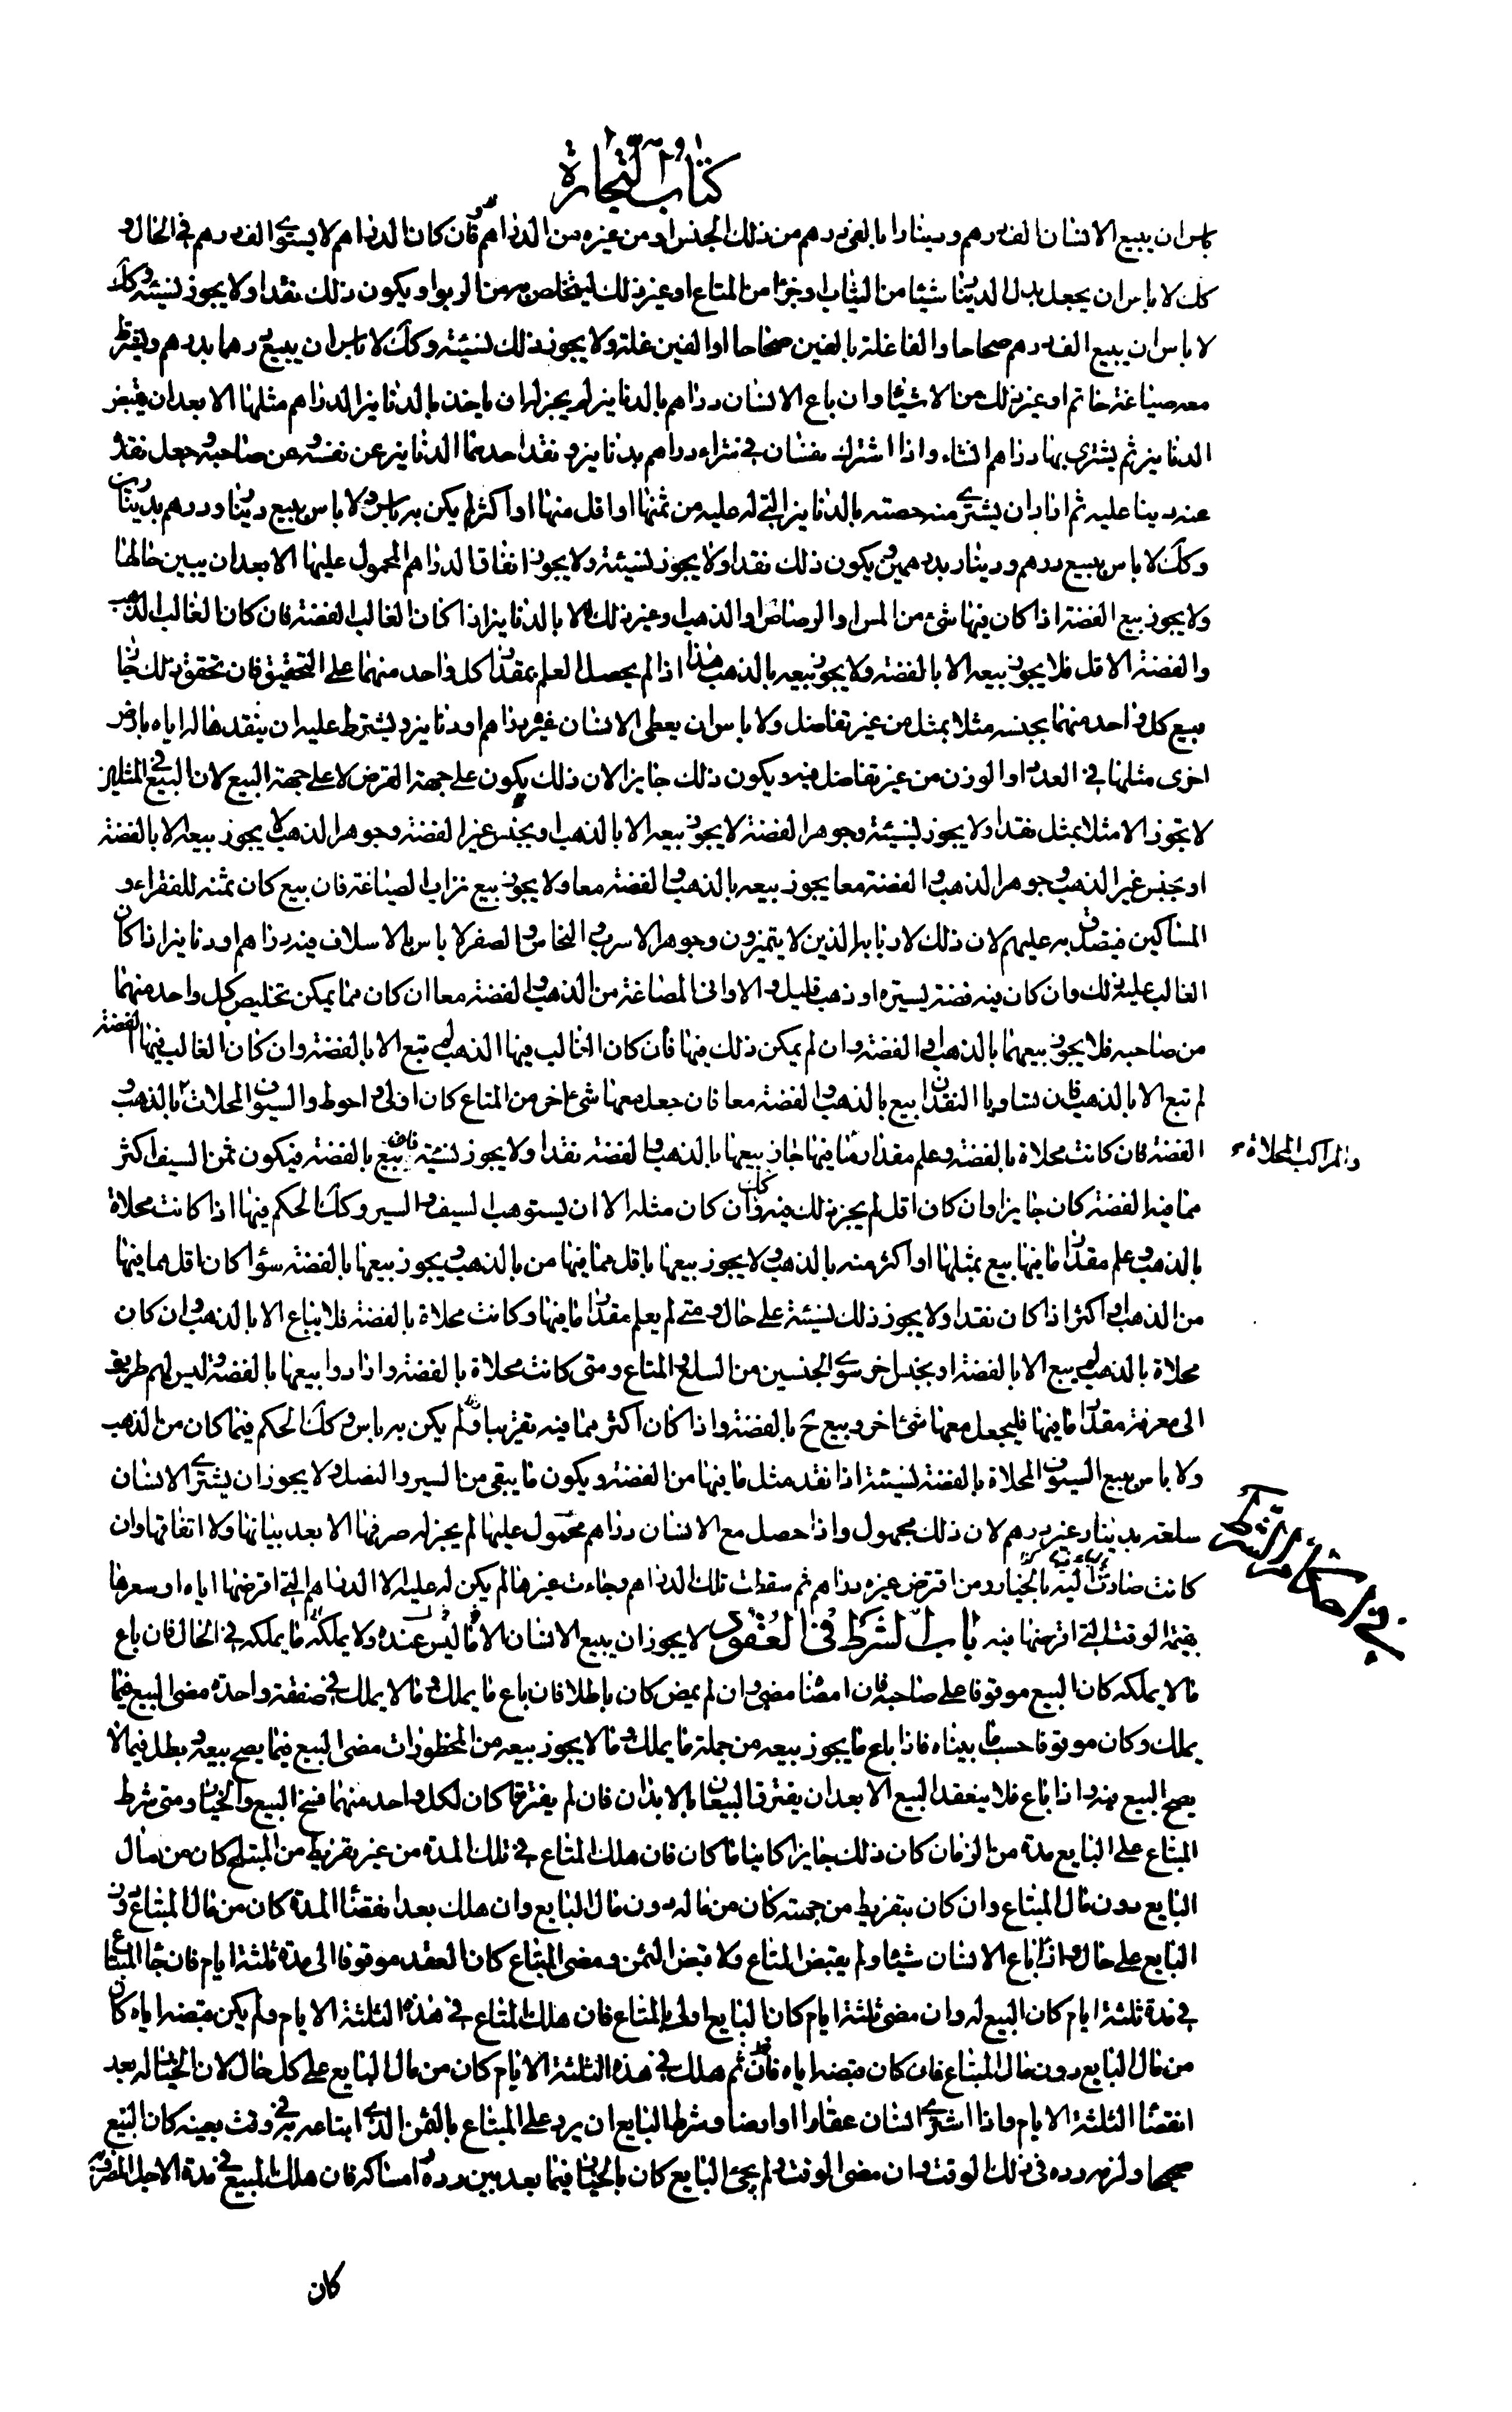 كتاب التجارة
باس ان يبيع الانسان الف درهم ودينارا بالفى درهم من ذلك الجنس او من غيره من الدراهم فان كان الدراهم لا يسوى الف درهم فى الحال و
كك لا باس ان يجعل بدل الدينار شيئا من الثياب او جزءا من المتاع او غير ذلك ليتخلص به من الربوا ويكون ذلك نقدا ولا يجوز نسيئة وكك
لا باس ان يبيع الف درهم صحاحا والفا غلة بالفين صحاحا او الفين غلة ولا يجوز ذلك نسيئة وكك لا باس ان يبيع درهما بدرهم ويشترط
معه صياغة خاتم او غير ذلك من الاشياء وان باع الانسان دراهم بالدنانير لم يجز له ان ياخذ بالدنانير الدراهم مثلها الا بعد ان يقبض
الدنانير ثم يشترى بها دراهم ان شاء واذا اشترك نفسان فى شراء دراهم بدنانير ونقد احدهما الدنانير عن نفسه وعن صاحبه وجعل نقده
عنه دينا عليه ثم اراد ان يشترى منه حصته بالدنانير التى له عليه من ثمنها او اقل منها او اكثر لم يكن به باس ولا باس ببيع دينار ودرهم بدينارين
وكك لا باس ببيع درهم ودينار بدرهمين ويكون ذلك نقدا ولا يجوز نسيئة ولا يجوز انفاق الدراهم المحمول عليها الا بعد ان يبين حالها
ولا يجوز بيع الفضة اذا كان فيها شئ من المس او الرصاص او الذهب او غير ذلك الا بالدنانير اذا كان الغالب الفضة فان كان الغالب الذهب
والفضة الاقل فلا يجوز بيعه الا بالفضة ولا يجوز بيعه بالذهب هذا اذا لم يحصل العلم بمقدار كل واحد منهما على التحقيق فان تحقق ذلك جاز
بيع كل واحد منهما بجنسه مثلا بمثل من غير تفاضل ولا باس ان يعطى الانسان غيره دراهم او دنانير ويشترط عليه ان ينقدها له اياه بارض
اخرى مثلها فى العدد او الوزن من غير تفاضل فيه ويكون ذلك جايزا لان ذلك يكون على جهة القرض لا على جهة البيع لان البيع فى المثلين
لا يجوز الا مثلا بمثل نقدا ولا يجوز نسيئة وجوهر الفضة لا يجوز بيعه الا بالذهب او بجنس غير الفضة وجوهر الذهب لا يجوز بيعه الا بالفضة
او بجنس غير الذهب وجوهر الذهب والفضة معا يجوز بيعه بالذهب والفضة معا ولا يجوز بيع تراب الصياغة فان بيع كان ثمنه للفقراء و
المساكين فيتصدق به عليهم لان ذلك لارباب الذين لا يتميزون وجوهر الاسرب والنحاس والصفر لا باس بالاسلاف فيه دراهم او دنانير اذا كان
الغالب عليه ذلك وان كان فيه فضة يسيرة او ذهب قليل والاوانى المصاغة من الذهب والفضة معا ان كان مما يمكن تخليص كل واحد منهما
من صاحبه فلا يجوز بيعهما بالذهب او الفضة وان لم يمكن ذلك فيها فان كان الغالب فيها الذهب لم تبع الا بالفضة وان كان الغالب فيها الفضة
لم تبع الا بالذهب فان تساويا النقدان بيع بالذهب والفضة معا فان جعل معها شئ اخر من المتاع كان اولى واحوط والسيوف المحلات بالذهب و
الفضة فان كانت محلاة بالفضة وعلم مقدار ما فيها جاز بيعها بالذهب والفضة نقدا ولا يجوز نسيئة فان بيع بالفضة فيكون ثمن السيف اكثر
والمراكب المحلاة
مما فيه الفضة كان جايزا وان كان اقل لم يجز ذلك فيه وكك ان كان مثله الا ان يستوهب السيف والسير وكك الحكم فيها اذا كانت محلاة
بالذهب وعلم مقدار ما فيها بيع بمثلها او اكثر منه بالذهب ولا يجوز بيعها باقل مما فيها من بالذهب ويجوز بيعها بالفضة سواء كان اقل مما فيها
من الذهب او اكثر اذا كان نقدا ولا يجوز ذلك نسيئة على حال ومتى لم يعلم مقدار ما فيها وكانت محلاة بالفضة فلا يباع الا بالذهب وان كان
محلاة بالذهب لم يبع الا بالفضة او بجنس اخر سوى الجنسين من السلع والمتاع ومتى كانت محلاة بالفضة وارادوا بيعها بالفضة وليس لهم طريق
الى معرفة مقدار ما فيها فليجعل معها شئ اخر وبيع ح بالفضة واذا كان اكثر مما فيه تقريبا ولم يكن به باس وكك الحكم فيما كان من الذهب
ولا باس ببيع السيوف المحلاة بالفضة نسيئة اذا نقد مثل ما فيها من الفضة ويكون ما يبقى من السير والنصل ولا يجوز ان يشترى الانسان
سلعة بدينار غير درهم لان ذلك مجهول واذا حصل مع الانسان دراهم محمول عليها لم يجز له صرفها الا بعد بيانها ولا انفاقها وان
كانت صارت اليه بالخيار ومن اقترض غيره دراهم ثم سقطت تلك الدراهم وجاءت غيرها لم يكن له عليه الا الدراهم التى اقرضها اياه او سعرها
بقيمة الوقت التى اقرضها فيه باب الشرط فى العقود لا يجوز ان يبيع الانسان الا ما ليس عنده ولا يملكه ما يملكه فى الحال فان باع
فى احكام الشرط
ما لا يملكه كان البيع موقوفا على صاحبه فان امضاه مضى وان لم يمض كان باطلا فان باع ما يملك وما لا يملك فى صفقة واحدة مضى البيع فيما
يملك وكان موقوفا حسب ما بيناه فاذا باع ما يجوز بيعه من جملة ما يملك وما لا يجوز بيعه من المحظورات مضى البيع فيما يصح بيعه وبطل فيما لا
يصح البيع فيه واذا باع فلا ينعقد البيع الا بعد ان يفترق البيعان بالابدان فان لم يفترقا كان لكل واحد منهما فسخ البيع والخيار ومتى شرط
المبتاع على البايع مدة من الزمان كان ذلك جايزا كاينا ما كان فان هلك المتاع فى تلك المدة من غير تفريط من المبتاع كان من مال
البايع دون مال المبتاع وان كان بتفريط من جهته كان من ماله دون مال البايع وان هلك بعد انقضاء المدة كان من مال المبتاع دون
البايع على حال واذا باع الانسان شيئا ولم يقبض المتاع ولا قبض الثمن ومضى المبتاع كان العقد موقوفا الى مدة ثلثة ايام فان جاء المبتاع
فى مدة ثلثة ايام كان البيع له وان مضى ثلثة ايام كان البايع اولى بالمتاع فان هلك المتاع فى هذه الثلثة الايام ولم يكن قبضه اياه كان
من مال البايع دون مال المبتاع فان كان قبضه اياه ثم هلك فى هذه الثلثة الايام كان من مال البايع على كل حال لان الخيار له بعد
انقضاء الثلثة الايام واذا اشترى انسان عقارا او ارضا وشرط البايع ان يرد على المبتاع بالثمن الذى ابتاعه به فى وقت بعينه كان البيع
صحيحا ولزمه رده فى ذلك الوقت وان مضى الوقت ولم يجئ البايع كان بالخيار فيما بعد بين رده وامساكه فان هلك المبيع فى مدة الاجل المضروب
كان